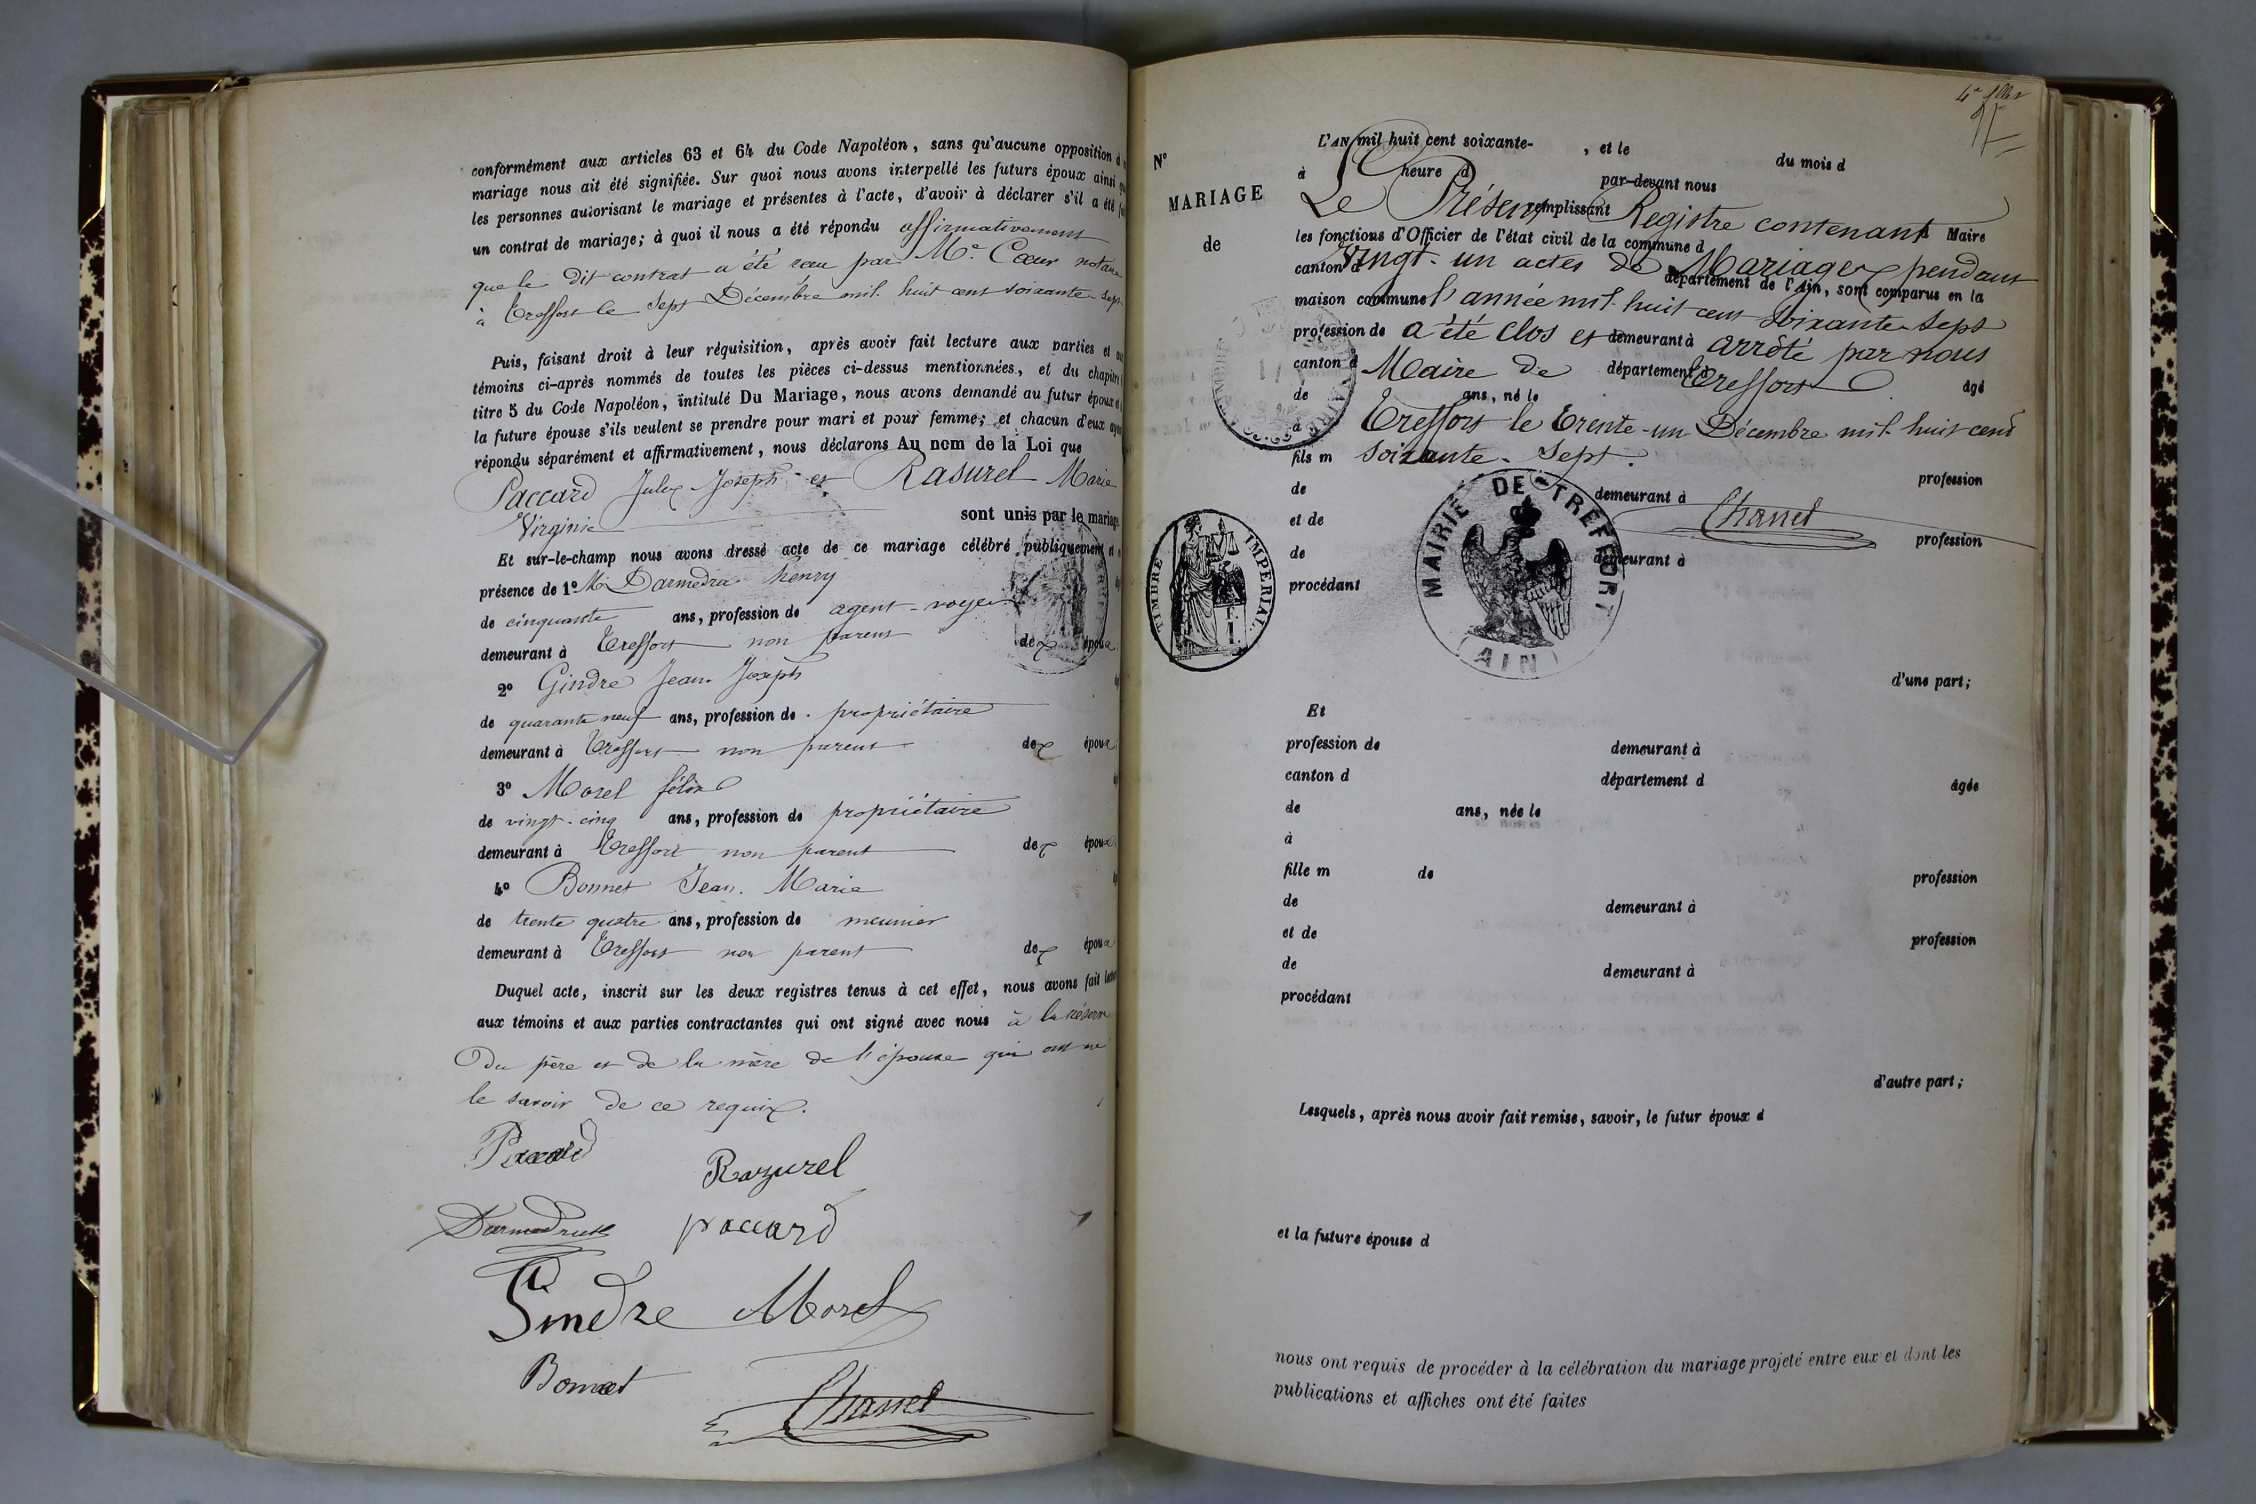 conformément aux articles 63 et 64 du Code Napoléon, sans qu'aucune opposition
mariage nous ait été signifiée. Sur quoi nous avons interpellé les futurs époux ainsi
les personnes autorisant le mariage et présentes à l'acte, d'avoir à déclarer s'il a été
un contrat de mariage; à quoi il nous a été répondu affirmativement
que le dit contrat a été reçu par Me. Cœur notaire
à Treffort le sept Décembre mil huit cent soixante sept
Puis, faisant droit à leur réquisition, après avoir fait lecture aux parties et
témoins ci-après nommés de toutes les pièces ci-dessus mentionnées, et du chapitre
titre 5 du Code Napoléon, intitulé Du Mariage, nous avons demandé au futur époux et
la future épouse s'ils veulent se prendre pour mari et pour femme; et chacun d'eux
répondu séparément et affirmativement, nous déclarons Au nom de la Loi que
Paccard Jules Joseph et Rasurel Marie
Virginie
sont unis par le mariage
Et sur-le-champ nous avons dressé acte de ce mariage célébré publiquement
présence de 1° Mr Darmedru henry
de cinquante ans, profession de agent-voyer
demeurant à Treffort non parent des époux
2° Gindre Jean Joseph
de quarante neuf ans, profession de propriétaire
demeurant à Treffort non parent des époux
3° Morel félix
de vingt-cinq ans, profession de propriétaire
demeurant à Treffort non parent des époux
4° Bonnet Jean Marie
de trente quatre ans, profession de meunier
demeurant à Treffort non parent des époux
Duquel acte, inscrit sur les deux registres tenus à cet effet, nous avons fait
aux témoins et aux parties contractantes qui ont signé avec nous à la réserve
Du père et de la mère de l'épouse qui ont ne
le savoir de ce requis.
Paccard
Razurel
Darmedru
paccard
Gindre Morel
Bonnet
Chanel
N°
MARIAGE
de
L'AN mil huit cent soixante- , et le du mois d
à heure d par-devant nous
Le Présent Registre contenant
remplissant
Maire
les fonctions d'Officier de l'état civil de la commune d
Vingt-un actes de Mariages pendant
canton d département de l'Ain, sont comparus en la
maison commune
l'année mil huit cent soixante-sept
profession de demeurant à
a été clos et arrêté par nous
canton d département d âgé
Maire de Treffort
de ans, né le
à
Treffort le Trente-un Décembre mil huit cent
fils m
soixante-sept.
de demeurant à profession
Chanel
et de
profession
de demeurant à
procédant
TIMBRE IMPERIAL
MAIRIE DE TREFFORT
(AIN)
d'une part;
Et
profession de demeurant à
canton d département d âgée
de ans, née le
à
fille m de profession
de demeurant à
et de profession
de demeurant à
procédant
d'autre part;
Lesquels, après nous avoir fait remise, savoir, le futur époux d
et la future épouse d
nous ont requis de procéder à la célébration du mariage projeté entre eux et dont les
publications et affiches ont été faites